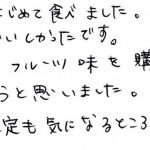 じめて食べました。
いしかったです。
フルーツ味を購
うと思いました。
定も気になるところ